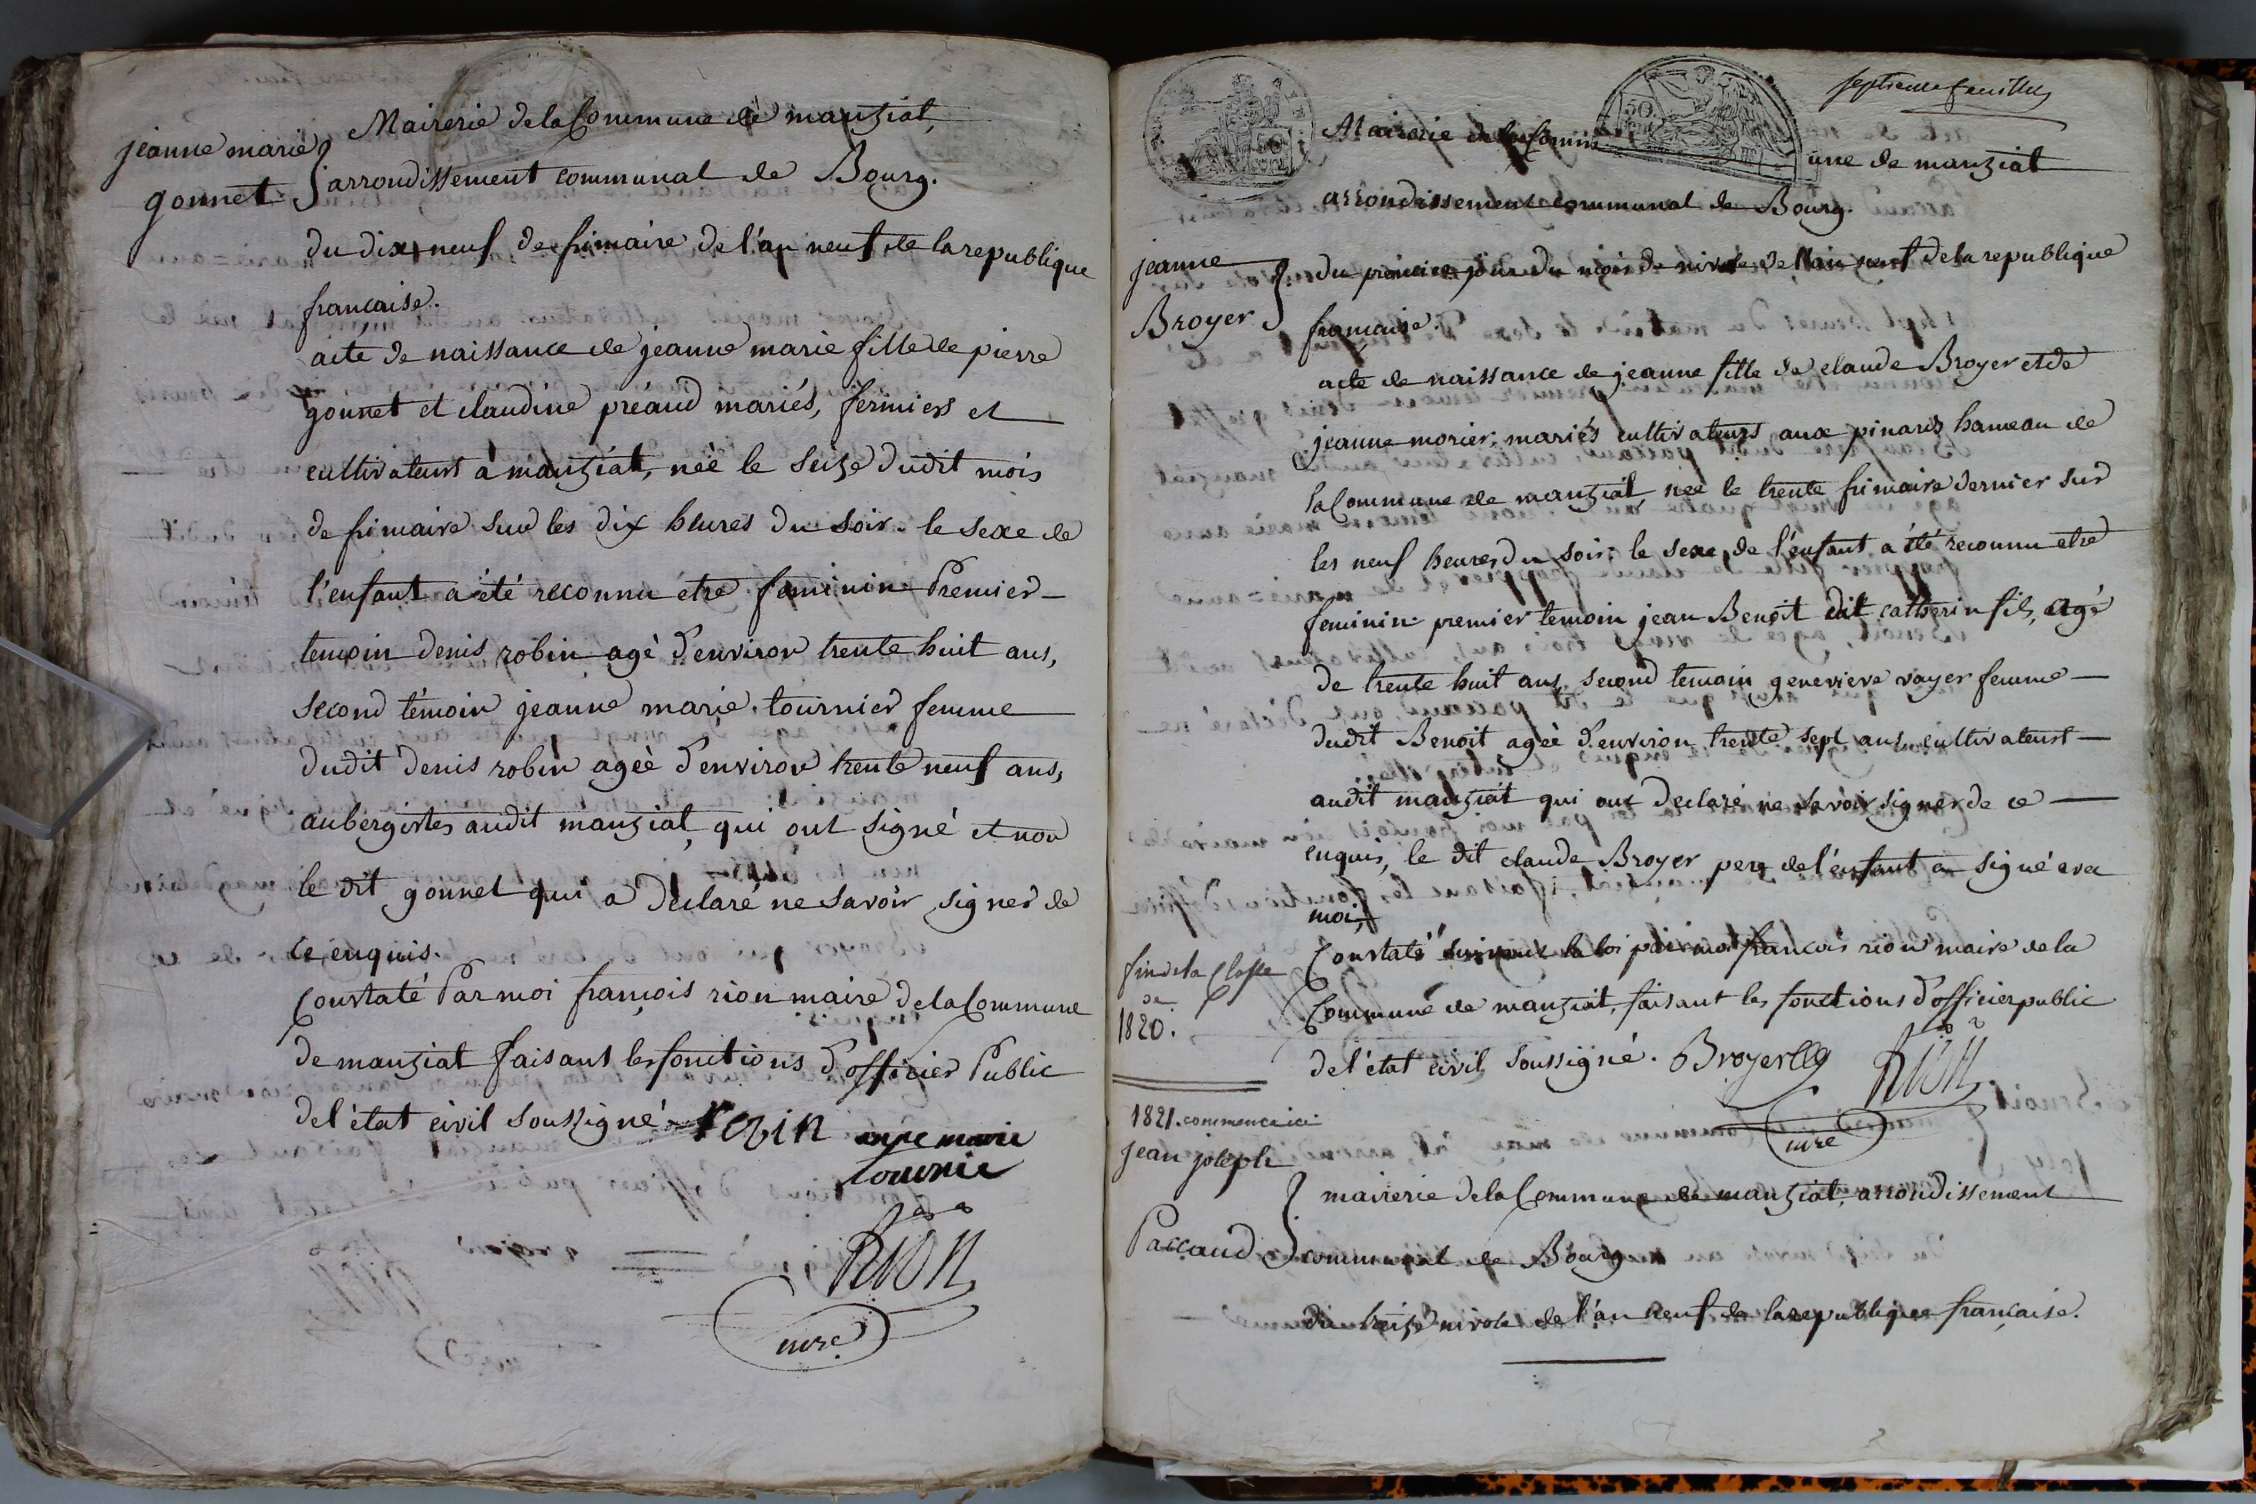 jeanne marie
gonnet
Mairerie de la Commune de manziat,
arrondissement communal de Bourg.
du dix neuf de frimaire de l'an neuf de la republique
francaise.
acte de naissance de jeanne marie fille de pierre
gonnet et claudine préaud mariés, fermiers et
cultivateurs a manziat, néé le seize dudit mois
de frimaire sur les dix heures du soir. le sexe de
l'enfant a été reconnu etre feminin. Premier
temoin denis robin agè d'environ trente huit ans,
second témoin jeanne marie tournier femme
dudit denis robin ageè d'environ trente neuf ans,
aubergistes audit manziat, qui ont signé et non
le dit gonnet qui a déclaré ne savoir signer de
ce enquis.
Constaté Par moi françois rion maire de la Commune
de manziat faisant les fonctions d'officier Public
de l'état civil soussigné robin
marie
tournie
Rion
mre
septieme feuillet
50
Mairerie de la Commune de manziat
arrondissement communal de Bourg.
jeanne
Broyer
du premier jour du mois de nivose de l'an neuf de la republique
française.
acte de naissance de jeanne fille de claude Broyer et de
jeanne morier, mariés cultivateurs aux pinards hameau de
la Commune de manziat née le trente frimaire dernier sur
les neuf heures du soir; le sexe de l'enfant a été reconnu etre
feminin. premier temoin jean Benoit dit catherin fils, agé
de trente huit ans, second temoin genevieve voyer femme
dudit Benoit ageè d'environ trente sept ans, cultivateurs
audit manziat qui ont declaré ne savoir signer de ce
enquis, le dit claude Broyer pere de l'enfant a signé avec
moi,
Constaté suivant la loi par moi francois rion maire de la
Commune de manziat, faisant les fonctions d'officier public
de l'état civil soussigné. Broyer Rion
mre
fin de la Classe
de
1820.
1821. commence ici
jean joseph
Paccaud
mairerie de la Commune de manziat, arrondissement
communal de Bourg
du treize nivose de l'an neuf de la republique française.